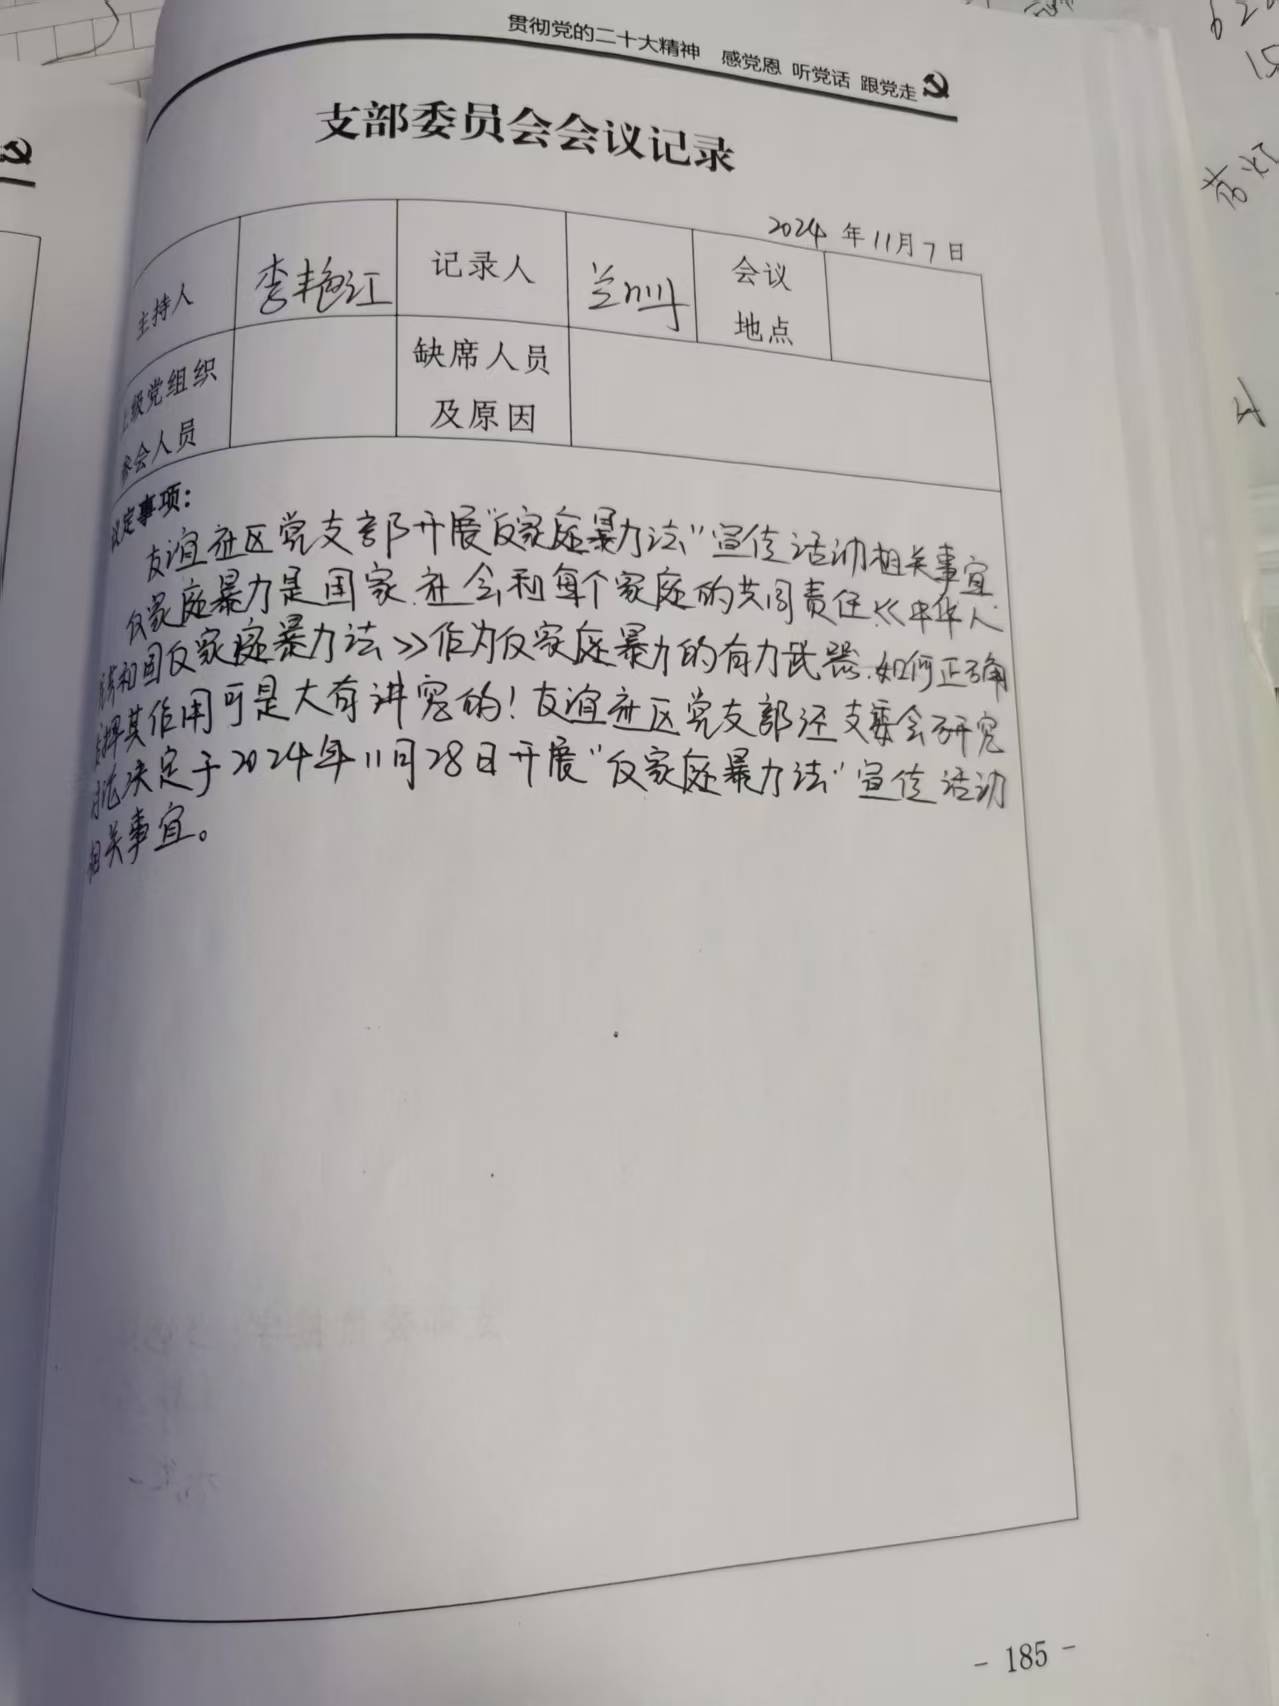 贯彻党的二十大精神 感党恩 听党话 跟党走
支部委员会会议记录
2024 年 11月 7 日
主持人 李艳红 记录人 会议地点
上级党组织参会人员 缺席人员及原因
议定事项：
友谊社区党支部开展“反家庭暴力法”宣传活动相关事宜
反家庭暴力是国家.社会和每个家庭的共同责任.《中华人
民共和国反家庭暴力法》作为反家庭暴力的有力武器.如何正确
发挥其作用可是大有讲究的！友谊社区党支部经支委会研究
讨论决定于2024年11月28日开展“反家庭暴力法”宣传活动
相关事宜。
- 185 -